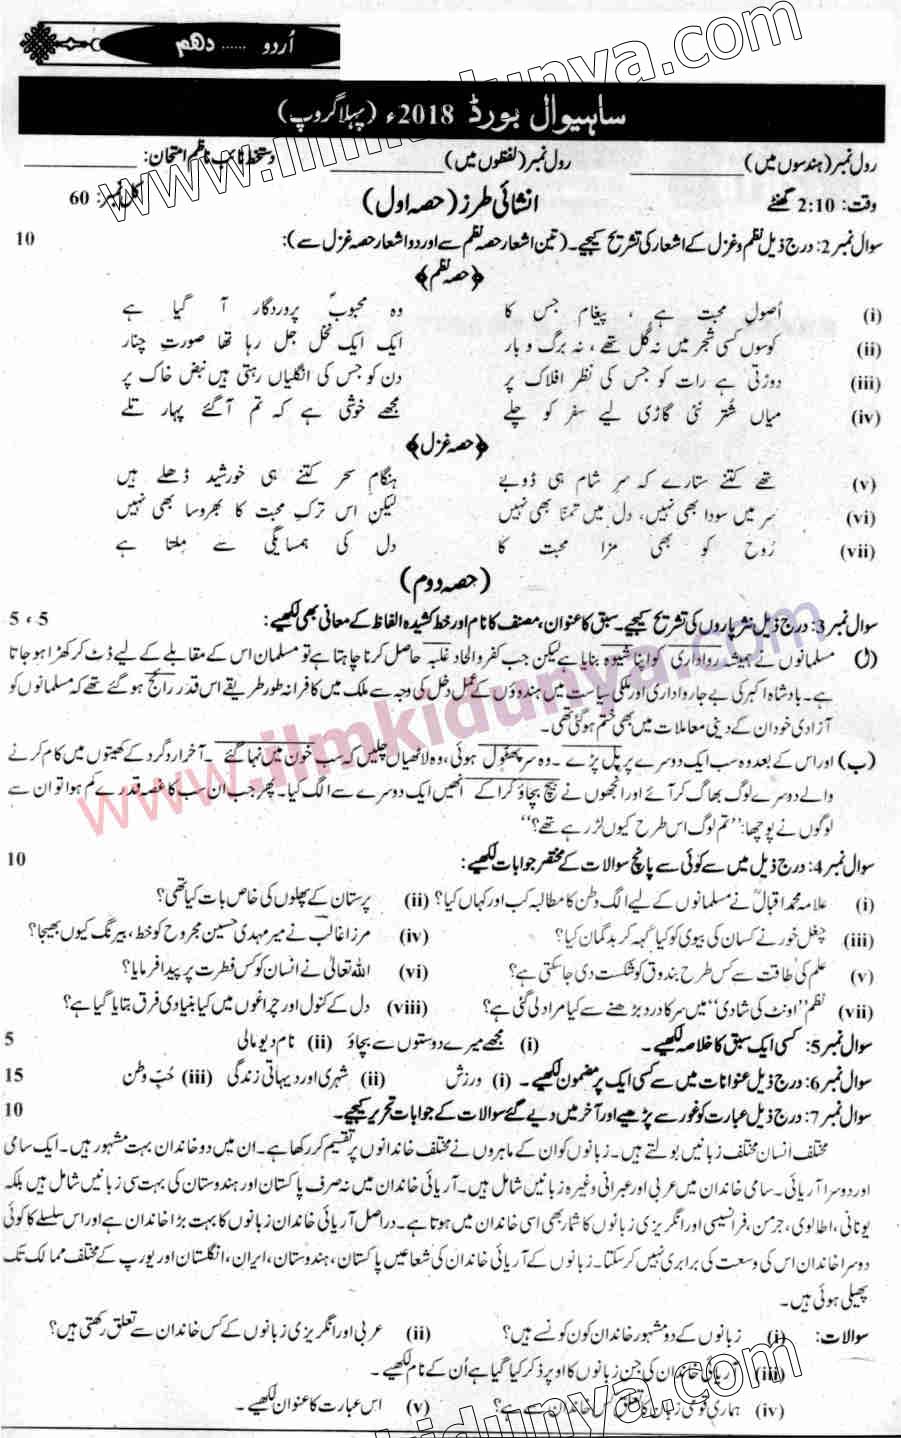 اُردو ...... دہم
ساہیوال بورڈ 2018ء (پہلا گروپ)
رول نمبر (ہندسوں میں) ____________ رول نمبر (لفظوں میں) ____________ دستخط نائب ناظم امتحان: ____________
وقت: 2:10 گھنٹے انشائی طرز (حصہ اول) کل نمبر: 60
سوال نمبر 2: درج ذیل نظم و غزل کے اشعار کی تشریح کیجیے۔ (تین اشعار حصہ نظم سے اور دو اشعار حصہ غزل سے): 10
﴿حصہ نظم﴾
(i) اُصولِ محبت ہے ، پیغام جس کا وہ محبوبِؐ پروردگار آ گیا ہے
(ii) کوسوں کسی شجر میں نہ گُل تھے ، نہ برگ و بار ایک ایک نخل جل رہا تھا صورتِ چنار
(iii) دوڑتی ہے رات کو جس کی نظر افلاک پر دن کو جس کی انگلیاں رہتی ہیں نبضِ خاک پر
(iv) میاں شُتر نئی گاڑی لیے سفر کو چلے مجھے خوشی ہے کہ تم آ گئے پہاڑ تلے
﴿حصہ غزل﴾
(v) تھے کتنے ستارے کہ سرِ شام ہی ڈوبے ہنگامِ سحر کتنے ہی خورشید ڈھلے ہیں
(vi) سَر میں سودا بھی نہیں، دل میں تمنا بھی نہیں لیکن اس ترکِ محبت کا بھروسا بھی نہیں
(vii) رُوح کو بھی مزا محبت کا دل کی ہمسائیگی سے مِلتا ہے
(حصہ دوم)
سوال نمبر 3: درج ذیل نثر پاروں کی تشریح کیجیے۔ سبق کا عنوان، مصنف کا نام اور خط کشیدہ الفاظ کے معانی بھی لکھیے: 5 ، 5
(ا) مسلمانوں نے ہمیشہ رواداری کو اپنا شیوہ بنایا ہے لیکن جب کفر و الحاد غلبہ حاصل کرنا چاہتا ہے تو مسلمان اس کے مقابلے کے لیے ڈٹ کر کھڑا ہو جاتا
ہے۔ بادشاہ اکبر کی بے جا رواداری اور ملکی سیاست میں ہندوؤں کے عمل دخل کی وجہ سے ملک میں کافرانہ طور طریقے اس قدر رائج ہو گئے تھے کہ مسلمانوں کو
آزادی خود ان کے دینی معاملات میں بھی ختم ہو گئی تھی۔
(ب) اور اس کے بعد وہ سب ایک دوسرے پر پل پڑے۔ وہ سر پھٹول ہوئی، وہ لاٹھیاں چلیں کہ سب خون میں نہا گئے۔ آخر ارد گرد کے کھیتوں میں کام کرنے
والے دوسرے لوگ بھاگ کر آئے اور انھوں نے بیچ بچاؤ کرا کے انھیں ایک دوسرے سے الگ کیا۔ پھر جب ان سب کا غصہ قدرے کم ہوا تو ان سے
لوگوں نے پوچھا: ”تم لوگ اس طرح کیوں لڑ رہے تھے؟“
سوال نمبر 4: درج ذیل میں سے کوئی سے پانچ سوالات کے مختصر جوابات لکھیے: 10
(i) علامہ محمد اقبالؒ نے مسلمانوں کے لیے الگ وطن کا مطالبہ کب اور کہاں کیا؟ (ii) پرستان کے پھلوں کی خاص بات کیا تھی؟
(iii) چغل خور نے کسان کی بیوی کو کیا کہہ کر بدگمان کیا؟ (iv) مرزا غالب نے میر مہدی حسین مجروح کو خط، بیرنگ کیوں بھیجا؟
(v) علم کی طاقت سے کس طرح بندوق کو شکست دی جا سکتی ہے؟ (vi) اللہ تعالیٰ نے انسان کو کس فطرت پر پیدا فرمایا؟
(vii) نظم ”اونٹ کی شادی“ میں سر کا درد بڑھنے سے کیا مراد لی گئی ہے؟ (viii) دل کے کنول اور چراغوں میں کیا بنیادی فرق بتایا گیا ہے؟
سوال نمبر 5: کسی ایک سبق کا خلاصہ لکھیے۔ (i) مجھے میرے دوستوں سے بچاؤ (ii) نام دیو مالی 5
سوال نمبر 6: درج ذیل عنوانات میں سے کسی ایک پر مضمون لکھیے۔ (i) ورزش (ii) شہری اور دیہاتی زندگی (iii) حُبِ وطن 15
سوال نمبر 7: درج ذیل عبارت کو غور سے پڑھیے اور آخر میں دیے گئے سوالات کے جوابات تحریر کیجیے۔ 10
مختلف انسان مختلف زبانیں بولتے ہیں۔ زبانوں کو ان کے ماہروں نے مختلف خاندانوں پر تقسیم کر رکھا ہے۔ ان میں دو خاندان بہت مشہور ہیں۔ ایک سامی
اور دوسرا آریائی۔ سامی خاندان میں عربی اور عبرانی وغیرہ زبانیں شامل ہیں۔ آریائی خاندان میں نہ صرف پاکستان اور ہندوستان کی بہت سی زبانیں شامل ہیں بلکہ
یونانی، اطالوی، جرمن، فرانسیسی اور انگریزی زبانوں کا شمار بھی اسی خاندان میں ہوتا ہے۔ دراصل آریائی خاندان زبانوں کا بہت بڑا خاندان ہے اور اس سلسلے کا کوئی
دوسرا خاندان اس کی وسعت کی برابری نہیں کر سکتا۔ زبانوں کے آریائی خاندان کی شعاعیں پاکستان، ہندوستان، ایران، انگلستان اور یورپ کے مختلف ممالک تک
پھیلی ہوئی ہیں۔
سوالات: (i) زبانوں کے دو مشہور خاندان کون کونسے ہیں؟ (ii) عربی اور انگریزی زبانوں کے کس خاندان سے تعلق رکھتی ہیں؟
(iii) آریائی خاندان کی جن زبانوں کا اوپر ذکر کیا گیا ہے اُن کے نام لکھیے۔
(iv) ہماری قومی زبان کا تعلق کس خاندان سے ہے؟ (v) اس عبارت کا عنوان لکھیے۔
www.ilmkidunya.com
www.ilmkidunya.com